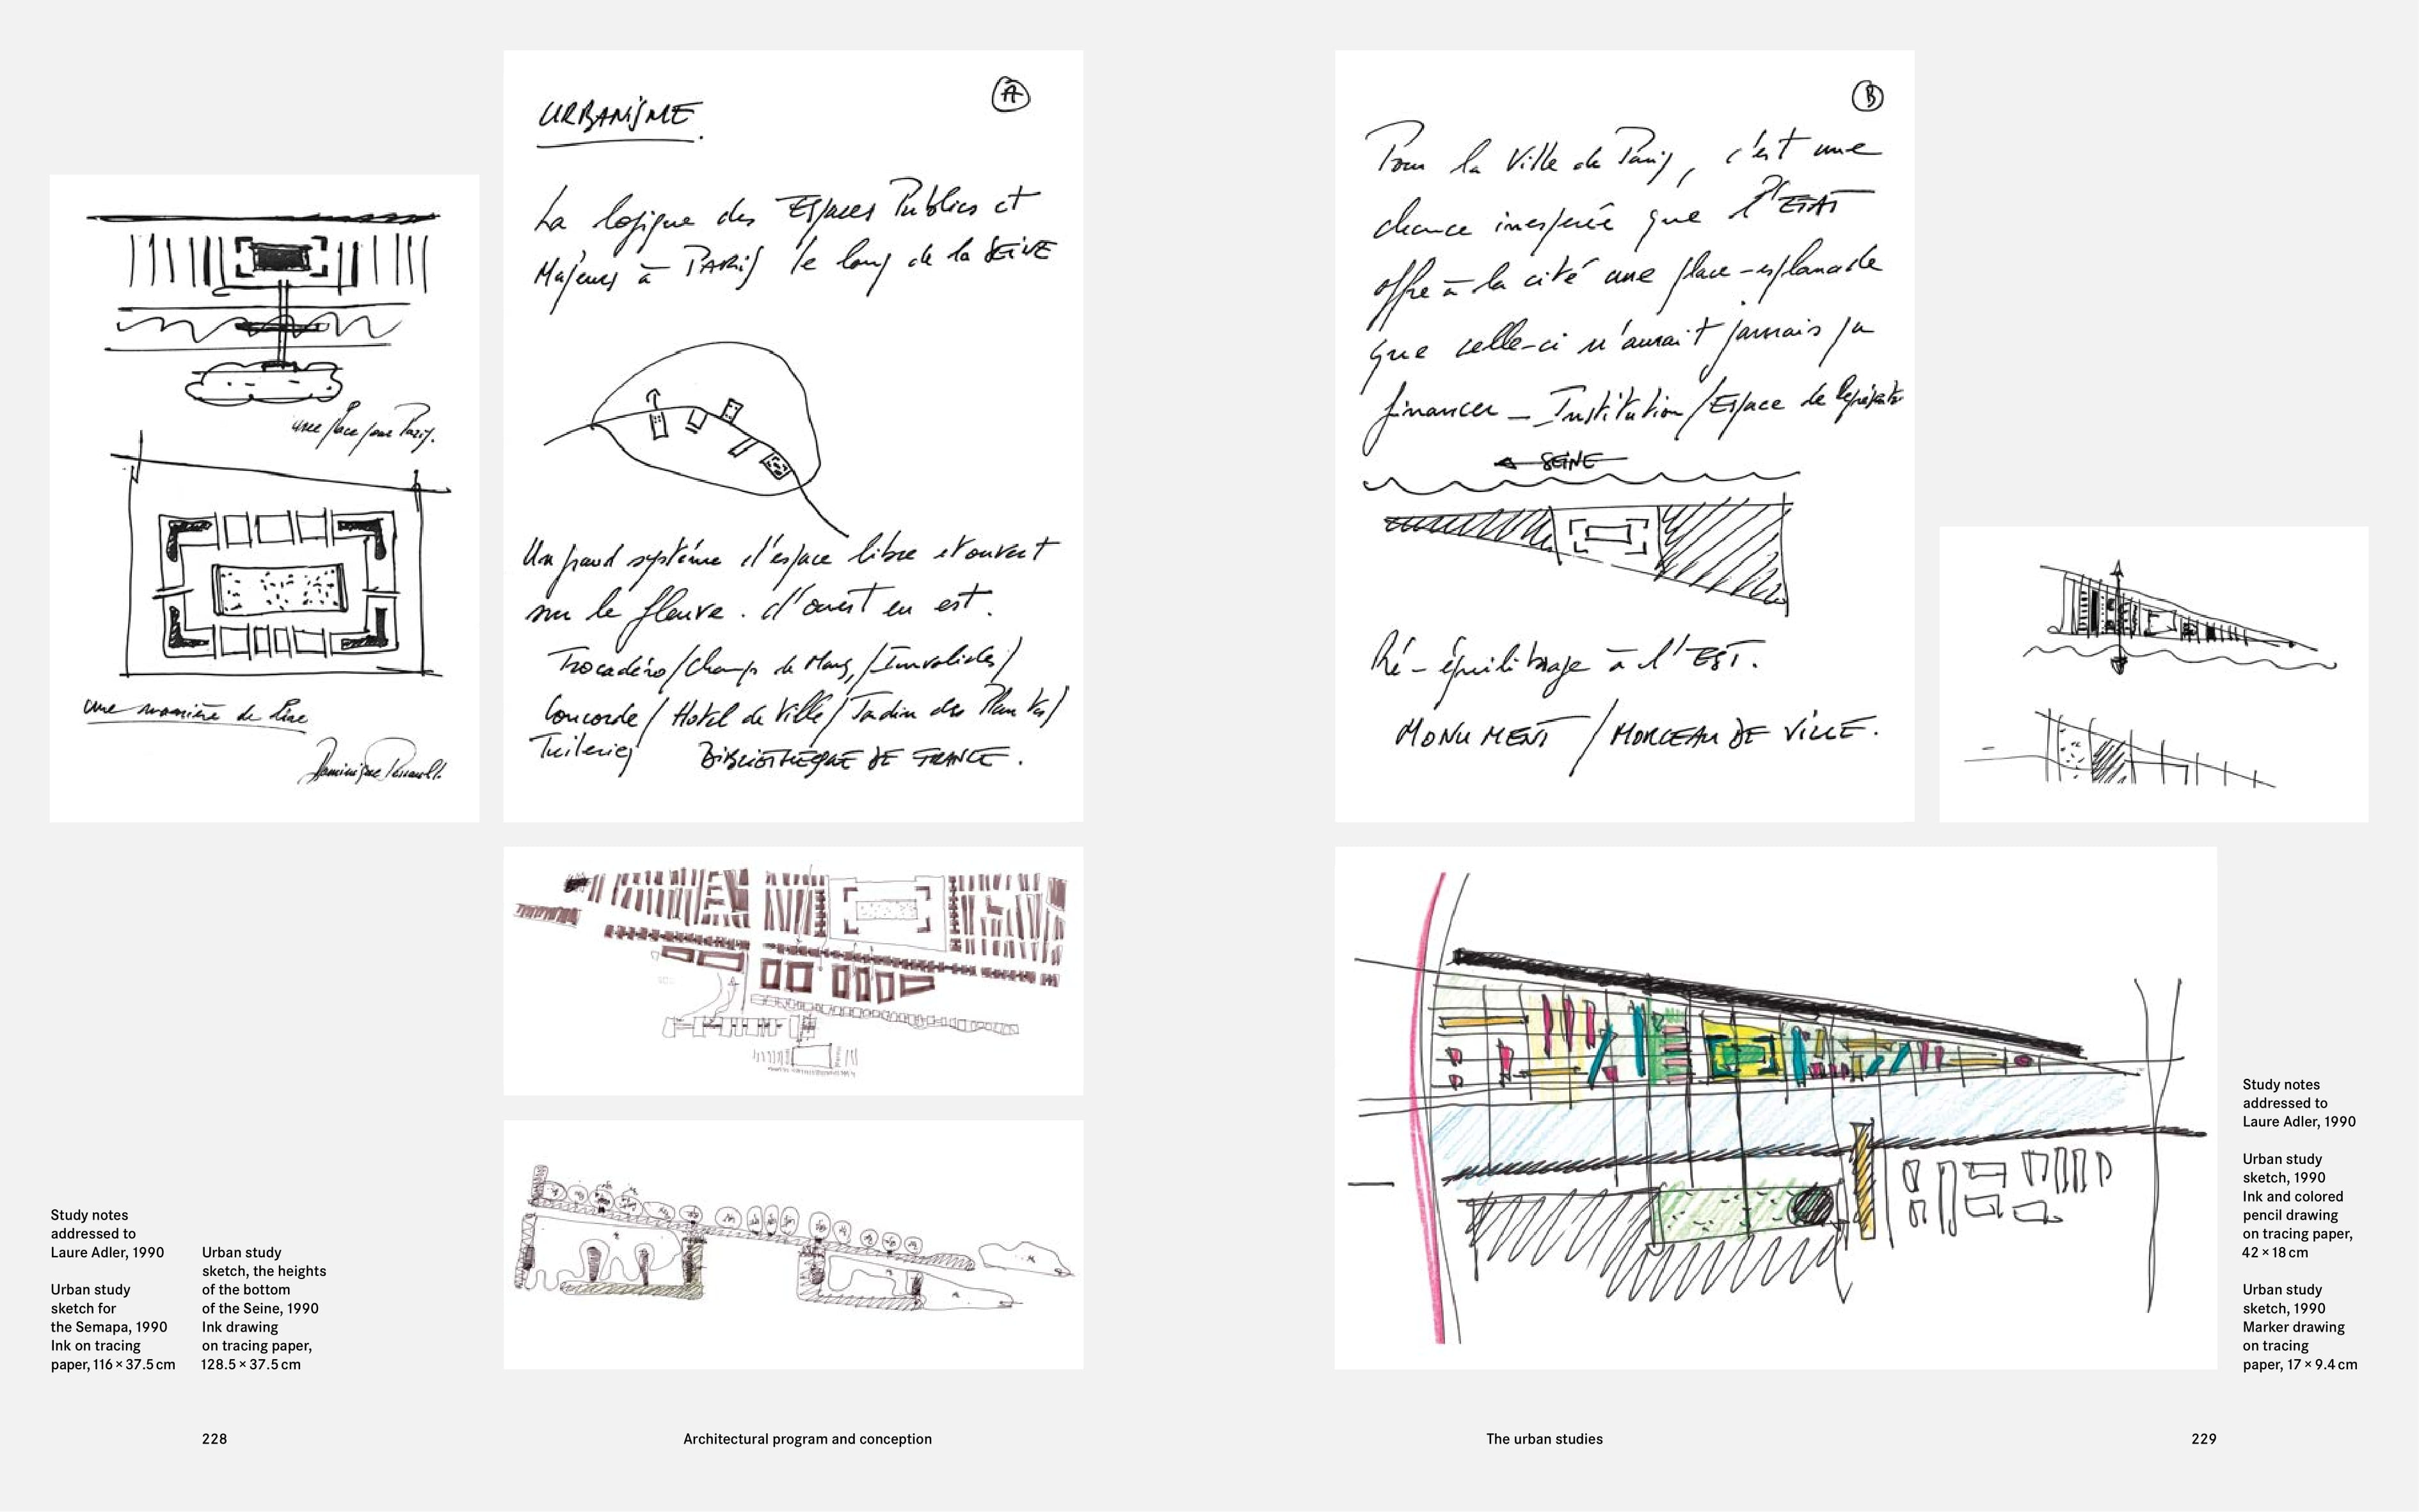 une place pour Paris.
une manière de lire
Dominique Perrault.
URBANISME.
A
La logique des Espaces Publics et
Majeurs à PARIS le long de la SEINE
Un grand système d'espace libre et ouvert
sur le fleuve. d'ouest en est.
Trocadéro/Champ de Mars,/Invalides/
Concorde/Hotel de Ville/Jardin des Plantes/
Tuileries BIBLIOTHÈQUE DE FRANCE.
Study notes
addressed to
Laure Adler, 1990
Urban study
sketch for
the Semapa, 1990
Ink on tracing
paper, 116 × 37.5 cm
Urban study
sketch, the heights
of the bottom
of the Seine, 1990
Ink drawing
on tracing paper,
128.5 × 37.5 cm
228
Architectural program and conception
B
Pour la Ville de Paris, c'est une
chance inespérée que l'ETAT
offre à la cité une place-esplanade
que celle-ci n'aurait jamais pu
financer _ Institution/Espace de
SEINE
Ré-équilibrage à l'EST.
MONUMENT / MORCEAU DE VILLE.
Study notes
addressed to
Laure Adler, 1990
Urban study
sketch, 1990
Ink and colored
pencil drawing
on tracing paper,
42 × 18 cm
Urban study
sketch, 1990
Marker drawing
on tracing
paper, 17 × 9.4 cm
The urban studies
229